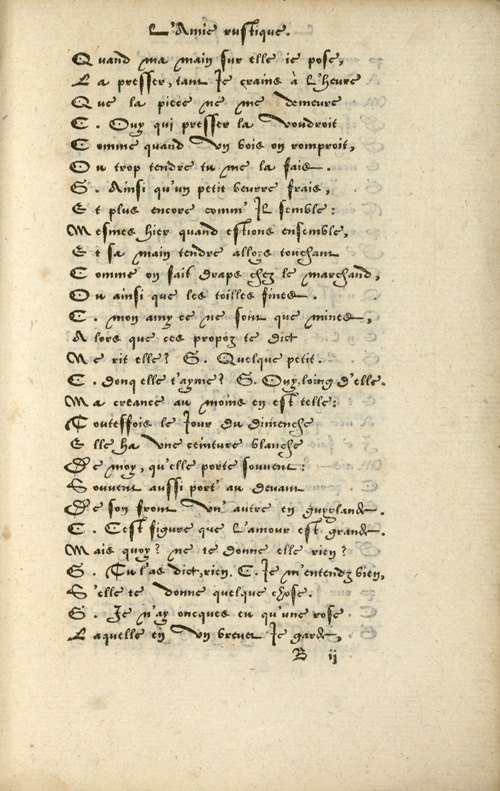 L'Amie rustique.
Quand ma main sur elle ie pose,
La presser, tant Je crains à L'heure
Que la piece ne me demeure
C. Ouy qui presser la voudroit
Comme quand vn bois on romproit,
Ou trop tendre tu me la fais.
G. Ainsi qu'vn petit beurre frais,
Et plus encore comm' Jl semble:
Mesmes hier quand estions ensemble,
Et sa main tendre allois touchant
Comme on fait draps chez le marchand,
Ou ainsi que les toilles fines.
C. mon amy ce ne sont que mines,
Alors que ces propoz te dict
Ne rit elle? G. Quelque petit.
C. donq elle t'ayme? G. Ouy, loing d'elle.
Ma creance au moins en est telle:
Touteffois le Jour du dimenche
Elle ha vne ceinture blanche
De moy, qu'elle porte souuent:
Souuent aussi port' au deuant
De son front vn' autre en guyrlande.
C. C'est figure que L'amour est grande.
Mais quoy? ne te donne elle rien?
G. Tu l'as dict, rien. C. Je m'entendz bien,
S'elle te donne quelque chose.
G. Je n'ay oncques eu qu'vne rose
Laquelle en vn breuet Je garde,
B ij